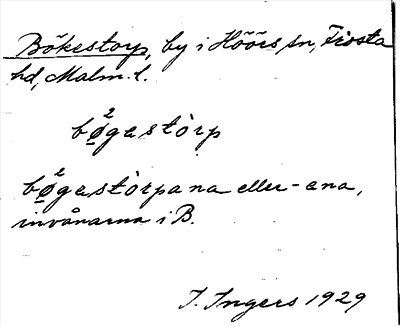 Bökestorp, by i Höörs sn, Frosta
hd, Malm. l.
bø̱²gastòrp
bø̱²gastòrpana eller -ana,
invånarna i B.
I. Ingers 1929